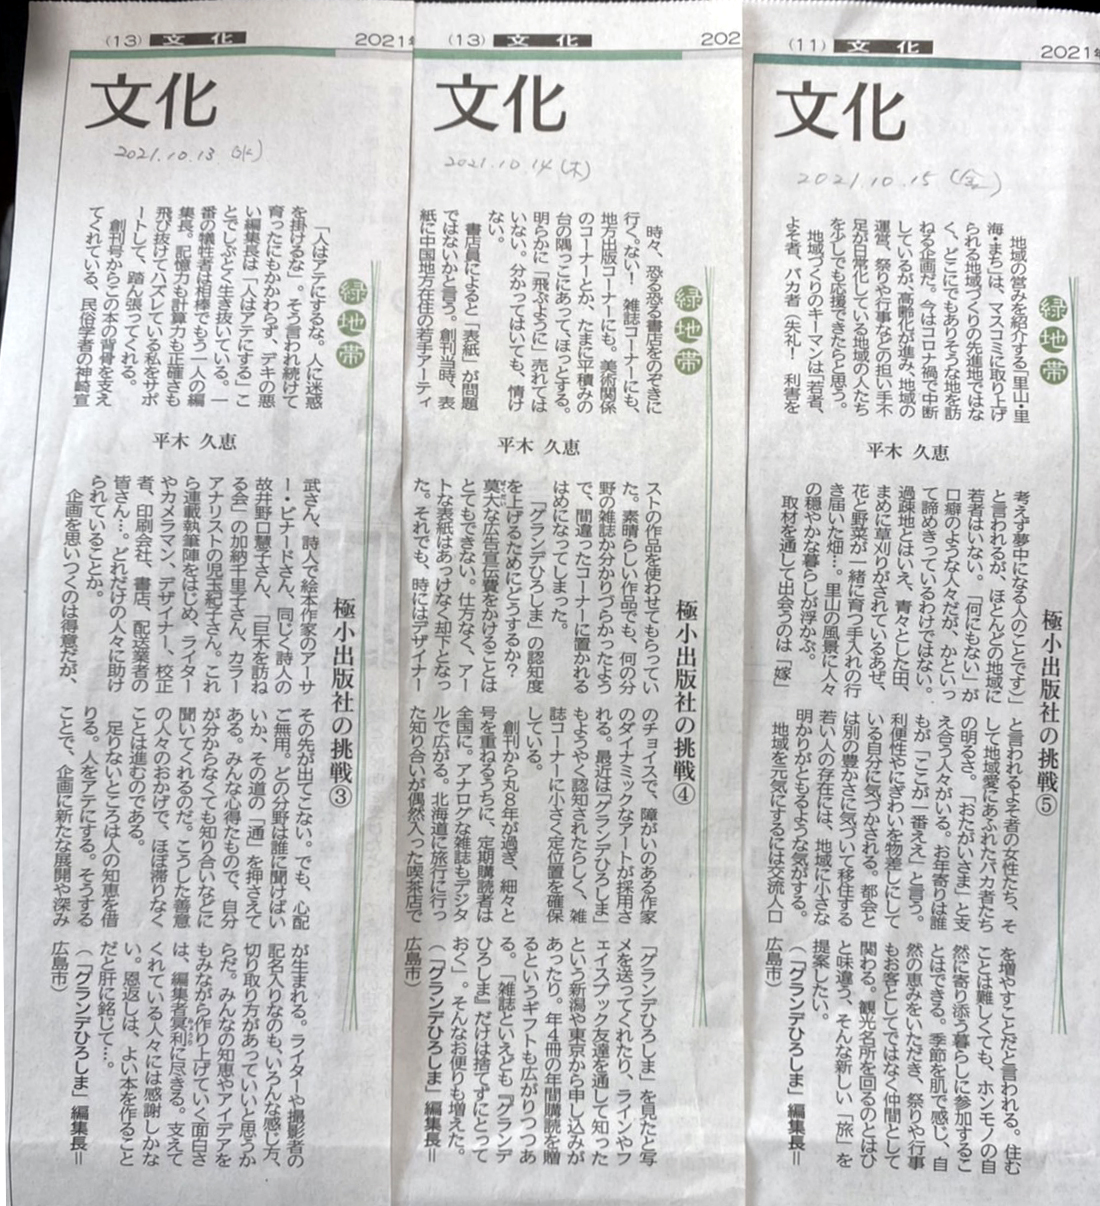 (13) 文化 2021年
文化
2021.10.13 (水)
緑地帯
極小出版社の挑戦③
平木 久恵
「人はアテにするな。人に迷惑
を掛けるな」。そう言われ続けて
育ったにもかかわらず、デキの悪
い編集長は「人はアテにする」こ
とでしぶとく生き抜いている。一
番の犠牲者は相棒でもう一人の編
集長。記憶力も計算力も正確さも
飛び抜けてハズレている私をサポ
ートして、踏ん張ってくれる。
創刊号からこの本の背骨を支え
てくれている、民俗学者の神崎宣
武さん、詩人で絵本作家のアーサ
ー・ビナードさん、同じく詩人の
故井野口慧子さん、「巨木を訪ね
る会」の加納千里子さん、カラー
アナリストの児玉紀子さん。これ
ら連載執筆陣をはじめ、ライター
やカメラマン、デザイナー、校正
者、印刷会社、書店、配送業者の
皆さん…。どれだけの人々に助け
られていることか。
企画を思いつくのは得意だが、
その先が出てこない。でも、心配
ご無用。どの分野は誰に聞けばい
いか、その道の「通」を押さえて
ある。みんな心得たもので、自分
が分からなくても知り合いなどに
聞いてくれるのだ。こうした善意
の人々のおかげで、ほぼ滞りなく
ことは進むのである。
足りないところは人の知恵を借
りる。人をアテにする。そうする
ことで、企画に新たな展開や深み
が生まれる。ライターや撮影者の
記名入りなのも、いろんな感じ方、
切り取り方があっていいと思うか
らだ。みんなの知恵やアイデアを
もみながら作り上げていく面白さ
は、編集者冥利に尽きる。支えて
くれている人々には感謝しかな
い。恩返しは、よい本を作ること
だと肝に銘じて…。
（「グランデひろしま」編集長＝
広島市）
(13) 文化 202
文化
2021.10.14 (木)
緑地帯
極小出版社の挑戦④
平木 久恵
時々、恐る恐る書店をのぞきに
行く。ない！ 雑誌コーナーにも、
地方出版コーナーにも。美術関係
のコーナーとか、たまに平積みの
台の隅っこにあって、ほっとする。
明らかに「飛ぶように」売れては
いない。分かってはいても、情け
ない。
書店員によると「表紙」が問題
ではないかと言う。創刊当時、表
紙に中国地方在住の若手アーティ
ストの作品を使わせてもらってい
た。素晴らしい作品でも、何の分
野の雑誌か分かりづらかったよう
で、間違ったコーナーに置かれる
はめになってしまった。
「グランデひろしま」の認知度
を上げるためにどうするか？
莫大な広告宣伝費をかけることは
とてもできない。仕方なく、アー
トな表紙はあっけなく却下となっ
た。それでも、時にはデザイナー
のチョイスで、障がいのある作家
のダイナミックなアートが採用さ
れる。最近は「グランデひろしま」
もようやく認知されたらしく、雑
誌コーナーに小さく定位置を確保
している。
創刊から丸８年が過ぎ、細々と
号を重ねるうちに、定期購読者は
全国に。アナログな雑誌もデジタ
ルで広がる。北海道に旅行に行っ
た知り合いが偶然入った喫茶店で
「グランデひろしま」を見たと写
メを送ってくれたり、ラインやフ
ェイスブック友達を通して知った
という新潟や東京から申し込みが
あったり。年４冊の年間購読を贈
るというギフトも広がりつつあ
る。「雑誌といえども『グランデ
ひろしま』だけは捨てずにとって
おく」。そんなお便りも増えた。
（「グランデひろしま」編集長＝
広島市）
(11) 文化 2021年
文化
2021.10.15 (金)
緑地帯
極小出版社の挑戦⑤
平木 久恵
地域の営みを紹介する「里山・里
海・まち」は、マスコミに取り上げ
られる地域づくりの先進地ではな
く、どこにでもありそうな地を訪
ねる企画だ。今はコロナ禍で中断
しているが、高齢化が進み、地域の
運営、祭りや行事などの担い手不
足が日常化している地域の人たち
を少しでも応援できたらと思う。
地域づくりのキーマンは「若者、
よそ者、バカ者（失礼！ 利害を
考えず夢中になる人のことです）」
と言われるが、ほとんどの地域に
若者はいない。「何にもない」が
口癖のような人々だが、かといっ
て諦めきっているわけではない。
過疎地とはいえ、青々とした田、
まめに草刈りがされているあぜ、
花と野菜が一緒に育つ手入れの行
き届いた畑…。里山の風景に人々
の穏やかな暮らしが浮かぶ。
取材を通して出会うのは「嫁」
と言われるよそ者の女性たち、そ
して地域愛にあふれたバカ者たち
の明るさ。「おたがいさま」と支
え合う人々がいる。お年寄りは誰
もが「ここが一番ええ」と言う。
利便性やにぎわいを物差しにして
いる自分に気づかされる。都会と
は別の豊かさに気づいて移住する
若い人の存在には、地域に小さな
明かりがともるような気がする。
地域を元気にするには交流人口
を増やすことだと言われる。住む
ことは難しくても、ホンモノの自
然に寄り添う暮らしに参加するこ
とはできる。季節を肌で感じ、自
然の恵みをいただき、祭りや行事
もお客としてではなく仲間として
関わる。観光名所を回るのとはひ
と味違う、そんな新しい「旅」を
提案したい。
（「グランデひろしま」編集長＝
広島市）